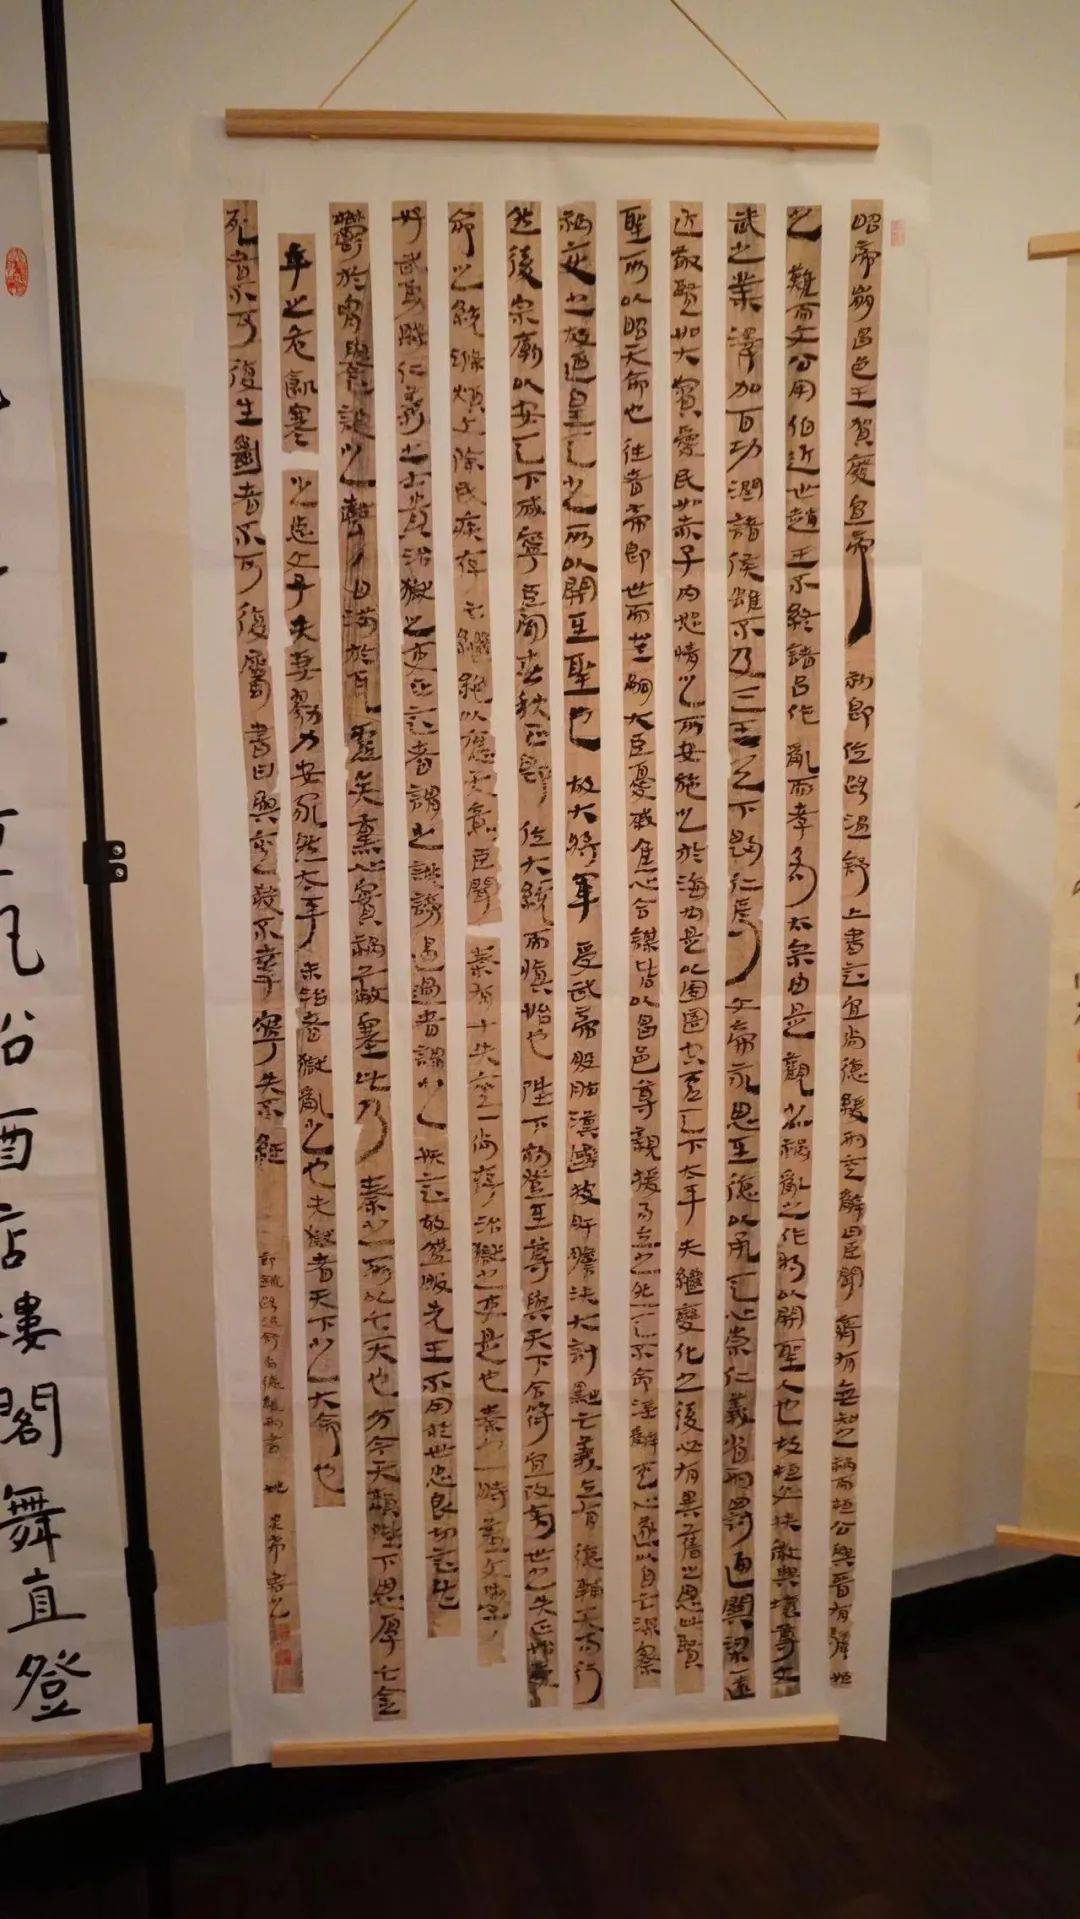 昭帝崩昌邑王賀廢宣帝初即位路溫舒上書言宜尚德緩刑其辭曰臣聞齊有無知之禍而桓公興晉有驪姬
之難而文公用伯近世趙王不終諸呂作亂而孝為太宗由是觀之禍亂之作將以開聖人也故桓文扶微興壞尊文
武之業澤加百功潤諸侯雖不及三王天下歸仁焉文帝永思至德以承天心崇仁義省刑罰通關梁一遠
近敬賢如大賓愛民如赤子內恕情之所安施之於海內是以囹圄空虛天下太平夫繼變化之後必有異舊之恩此賢
聖所以昭天命也往者帝即世而無嗣大臣憂戚焦心合謀皆以昌邑尊親援而立之然天不命淫辭其心遂以自亡深察
禍变之故迺皇天之所以開至聖也故大將軍受武帝股肱漢國披肝膽決大計黜亡義立有德輔天而行
然後宗廟以安天下咸寧臣聞春秋正即位大統而慎始也陛下初登至尊與天下合符宜改前世之失正始受
命之統滌煩文除民疾存亡繼絕以應天意臣聞秦有十失其一尚存治獄之吏是也秦之時羞文學
好武勇賤仁義之士貴治獄之吏正言者謂之誹謗遏過者謂之妖言故盛服先王不用於世忠良切言皆
鬱於胸譽諛之聲日滿於耳虛美熏心實禍蔽塞此乃秦之所以亡天也方今天賴陛下恩厚亡金
革之危飢寒之患父子夫妻勠力安家然太平未洽者獄亂之也夫獄者天下之大命也
死者不可復生𢇍者不可復屬書曰與其殺不辜寧失不經 路溫舒尚德緩刑書
俗酉店樓閣舞直登